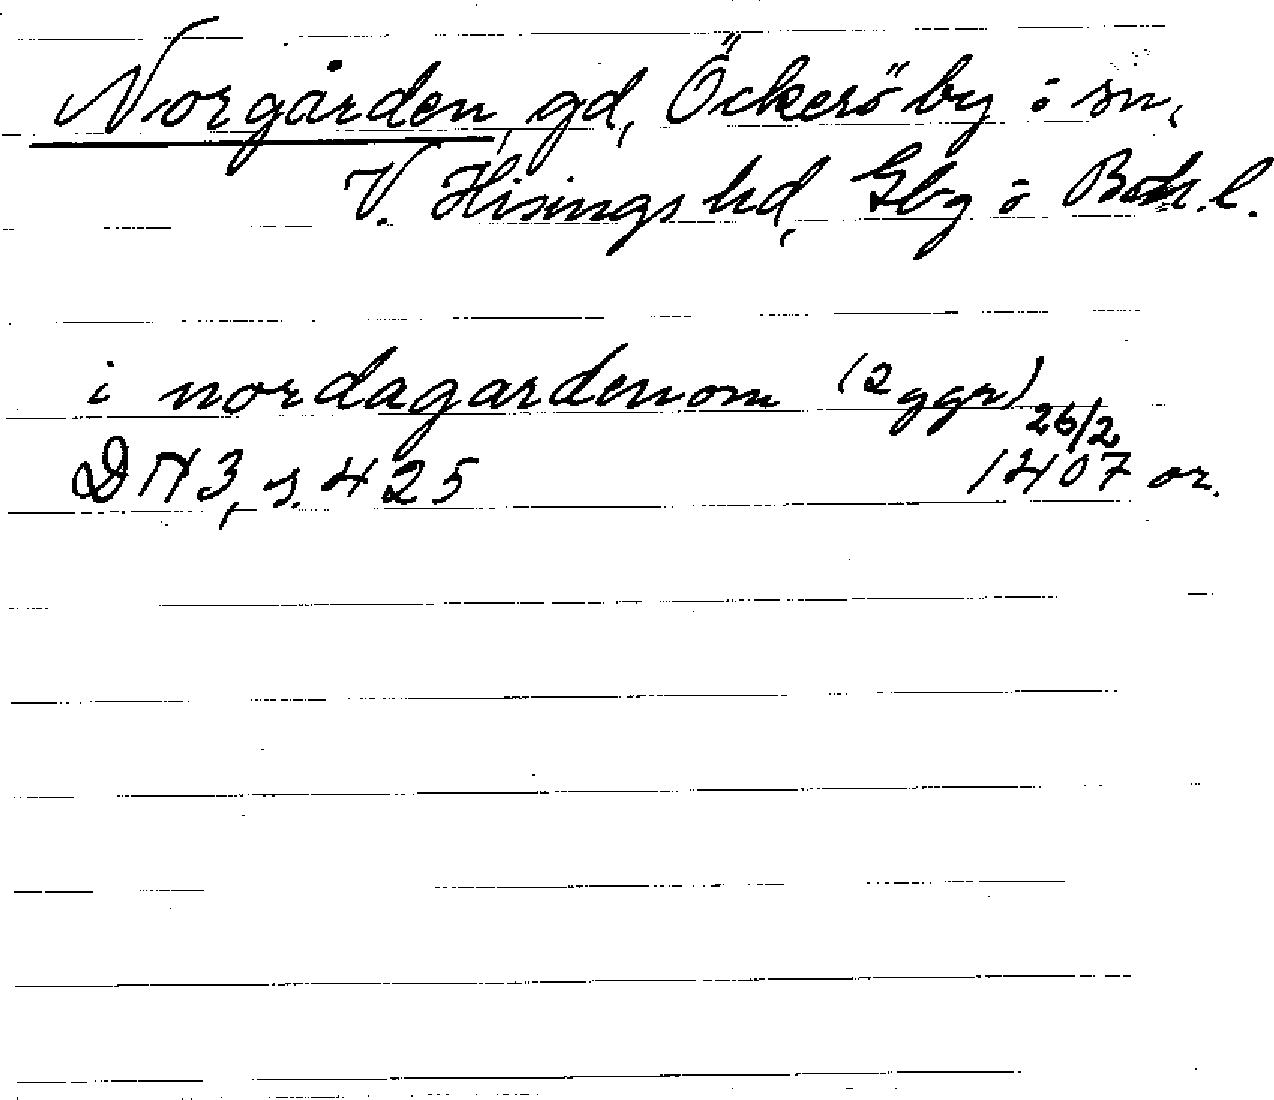 Norgården, gd, Öckerö by i sn,
V. Hisings hd, Gbg o Boh. l.
i nordagardenom (2 ggr)
DN 3, s. 425 26/2 1407 or.